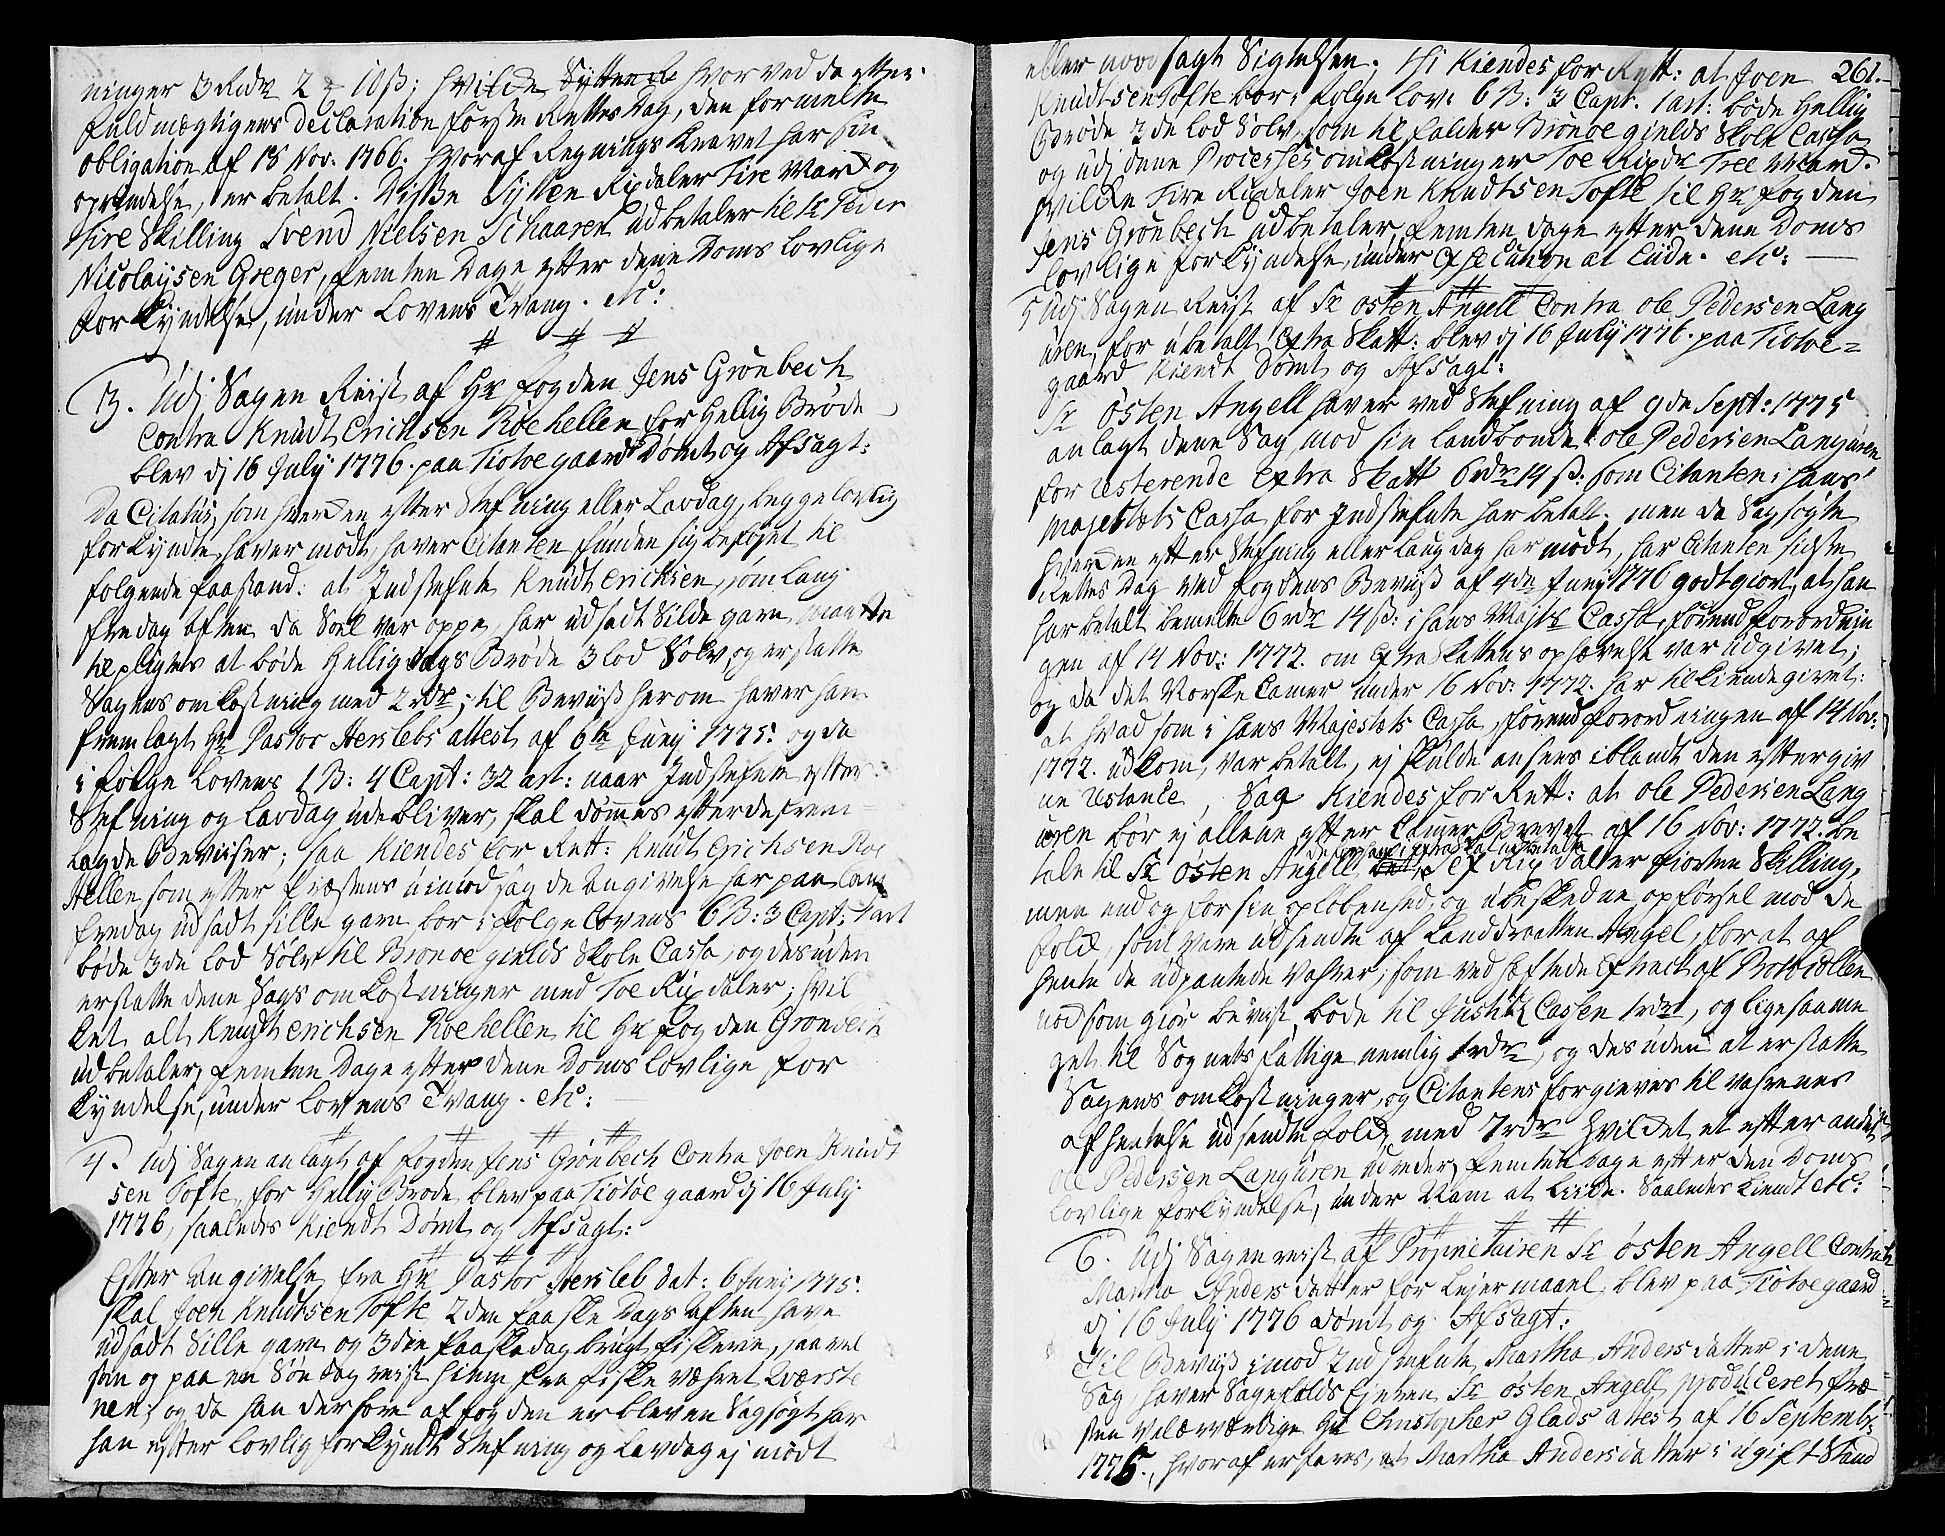 ninger 3 Rdr 2 10 ß; hvilke Sytten hvorved de efter
fuldmægtigens declaration første Rettes Dag, den formelte
obligation af 18 Nov: 1766. hvoraf Regnings Kravet har sin
oprindelse, er betalt. Disse Sytten Rixdaler Fire Mark og
fire Skilling Svend Nielsen Schaaren udbetaler til Sr Peder
Nicolaysen Greger, femten Dage efter dene Doms lovlige
forkyndelse, under Lovens Tvang. etc:
3. Udj Sagen Reist af Hr fogden Jens Grønbech
Contra Knudt Erichsen Roehellen for Hellig Brøde
blev dj 16 July 1776. paa Tiøtøe gaard Dømt og Afsagt:
Da Citatus, som hverken efter Stefning eller Lavdag, begge lovlig
forkyndte, haver mødt, haver Citanten funden sig beføjet til
følgende paastand: at Indstefnte Knudt Ericksen, som lang
fredag aften da Soel var oppe, har udsadt Silde garn, maatte
tilpligtes at bøde Helligdags Brøde 3 lod Sølv, og erstatte
Sagens omkostning med 2 rdr; til Beviis herom haver han
fremlagt Hr Pastor Herslebs attest af 6te Junj 1775. og da
i følge Lovens 1 B: 4 Capt: 32 art: naar Indstefnte efter
Stefning og Lavdag udebliver, skal dømmes efter de frem=
lagde Beviiser; saa Kiendes for Rett: Knudt Erichsen Roe
Hellen som efter Præstens uimodsagde angivelse har paa lang
fredag udsadt sille garn bør i følge Lovens 6 B: 3 Capt: 1 art
bøde 3de Lod Sølv til Brønøe gields Skole Cassa, og desuden
erstatte dene Sags omkostninger med Toe Rixdaler; hvil
ket alt Knudt Erichsen Roehellen til Hr fogden Grønbech
udbetaler, femten Dage efter Dene Doms Lovlige for
kyndelse, under Lovens Tvang. etc:
4. Udj Sagen anlagt af fogden Jens Grønbech Contra Joen Knudt
sen Tofte, for Hellig Brøde blev paa Tiøtøe gaard dj 16 July
1776, saaledes Kiendt Dømt og Afsagt:
Efter angivelse fra Hr Pastor Hersleb dat: 6 Junj 1775.
skal Joen Knudtsen Tofte 2den Paaske Dags Aften have
udsadt Sille garn og 3die Paaskedag brugt fiskerie, saavel
som og paa en Søndag reist hiem fra fiske væhret Qværste
nen; og da han derfore af fogden er bleven Sagsøgt har
han efter lovlig forkyndt Stefning og Lavdag ej mødt
261.
eller modsagt Sigtelsen. Thi Kiendes for Rett: at Joen
Knudtsen Tofte bør i følge Lov: 6 B: 3 Capt. 1 art: bøde Hellig
Brøde 2de Lod Sølv, som tilfalder Brønøe gields Skole Cassa
og udj dene Processes omkostninger Toe Rixdr Tree Mark.
Hvilke Fire Rixdaler Joen Knudtsen Tofte til Hr fogden
Jens Grønbech udbetaler, femten dage efter dene Doms
lovlige forkyndelse, under Execution at liide. etc:
5. Udj Sagen Reist af Sr Østen Angell Contra Ole Pedersen Lang
uren, for ubetalt Extra Skatt: blev dj 16 July 1776. paa Tiøtøe=
gaard Kiendt Dømt og Afsagt:
Sr Østen Angell haver ved Stefning af 9de Sept: 1775
anlagt dene Sag, mod sin Landbonde Ole Pedersen Languren
for resterende Extra Skatt 6 rdr 14 ß: som Citanten i Hans
Majestæts Cassa for Indstefnte har betalt. men da Sagsøgte
hverken efter Stefning eller laugdag har mødt, har Citanten sidste
Rettes Dag ved fogdens Beviis af 4de Junj 1776 godtgiort, at han
har betalt bemelte 6 rdr 14 ß: i Hans Majts Cassa, førend forordnin
gen af 14 Nov: 1772. om Extra Skattens ophævelse var udgivet;
og da det Norske Camer under 16 Nov: 1772. har tilkiendegivet:
at hvad som i Hans Majestæts Cassa, førend forordningen af 14 Nov:
1772. udkom, var betalt, ej skulde ansees iblandt den eftergiv
ne Restance, Saa Kiendes for Rett: at Ole Pedersen Lang
uren bør ej allene efter Camer Brevet af 16 Nov: 1772. be
tale til Sr Østen Angell, Sex Rixdaler fiorten Skilling,
men endog for sin opløbenhed, og ubeskedne opførsel mod de
folk, som vare udsendte af Landdraatten Angel, for at af
hente de udpantede Vahrer, som ved Heftede Extract af Protocollen
nodsom giør beviist, bøde til Justitz Cassen 1 rdr, og ligesaa me
get til Sognets fattige nemlig 1 rdr, og desuden at erstatte
Sagens omkostninger, og Citantens forgieves til vahrenes
afhentelse udsendte folk, med 7 rdr Hvilket et efter andet
Ole Pedersen Languren udreder, femten dage efter den Doms
lovlige forkyndelse, under Nam at liide. Saaledes kiendt etc:
6. Udj Sagen reist af Proprietairen Sr Østen Angell Contra
Martha Anders datter for Lejermaael, blev paa Tiøtøe gaard
dj 16 July 1776 dømt og Afsagt:
Til Beviis imod Indstefnte Martha Anders datter i dene
Sag, haver Sagefalds Ejeren Sr Østen Angell produceret Præ
sten velærværdige Hr Christopher Glads attest af 16 Septembr
1775., hvoraf erfares, at Martha Andersdatter i ugift Stand